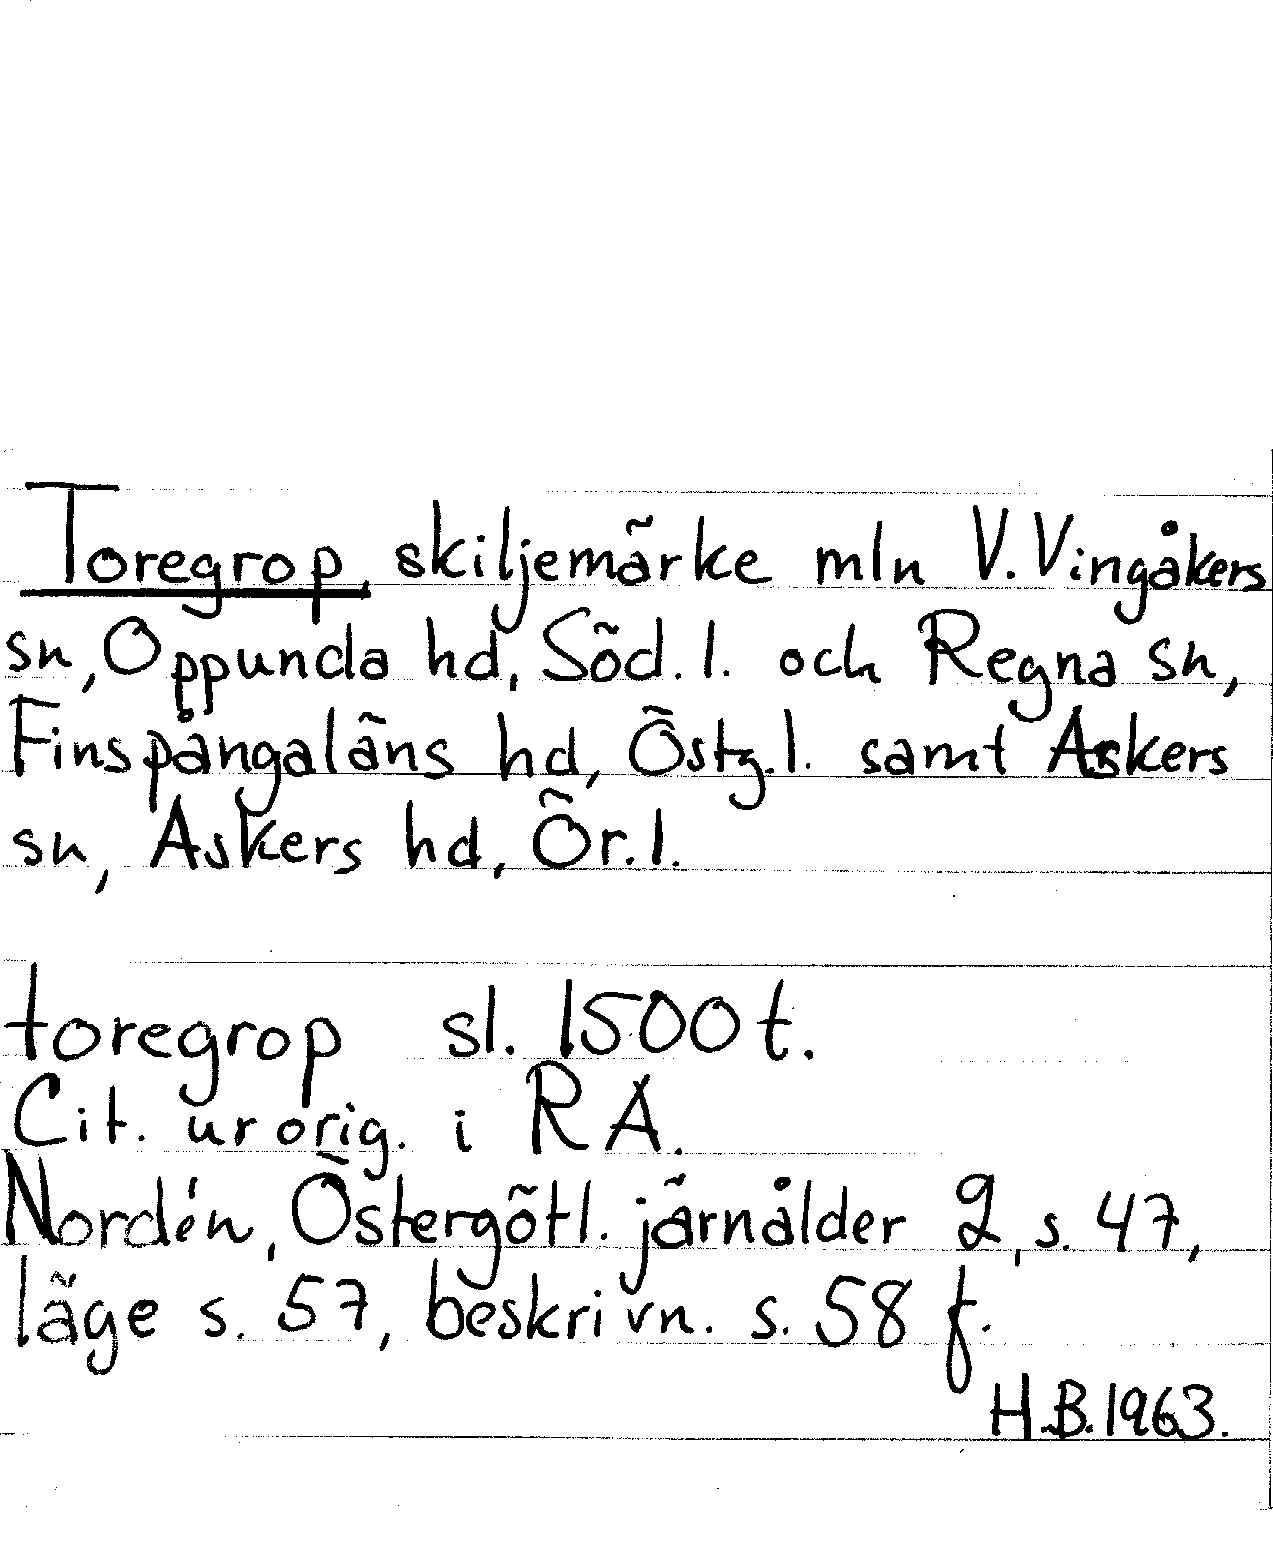 Toregrop, skiljemärke mln V. Vingåkers
sn, Oppunda hd, Söd. l. och Regna sn,
Finspångaläns hd, Östg. l. samt Askers
sn, Askers hd, Ör. l.
toregrop sl. 1500 t.
Cit. ur orig. i RA.
Nordén, Östergötl. järnålder 2, s. 47,
läge s. 57, beskrivn. s. 58 f.
H.B. 1963.